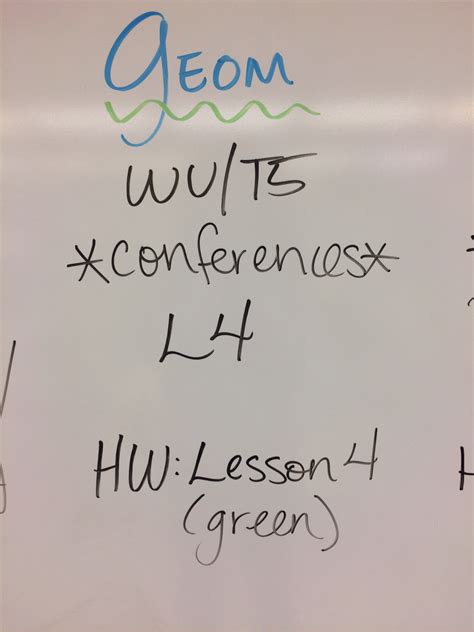 GEOM
WU/T5
*conferences*
L4
HW: Lesson 4
(green)
H